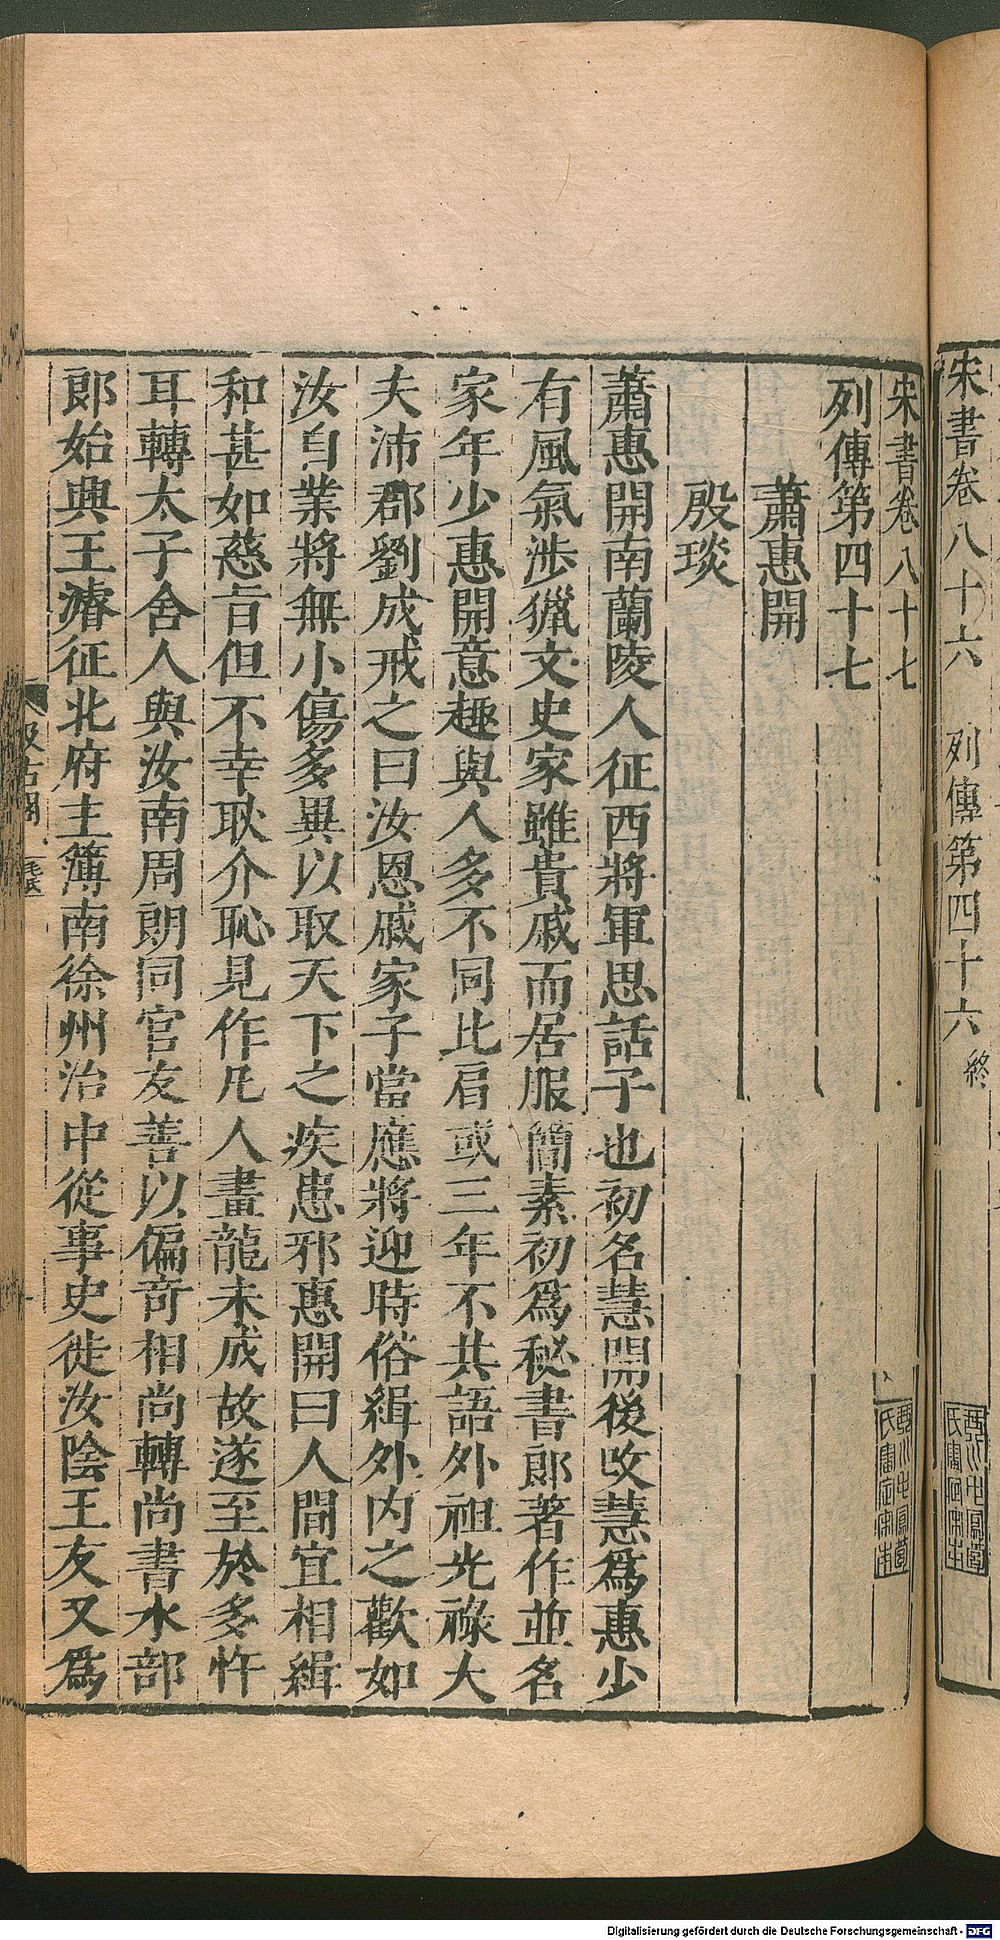 宋書卷八十六　列傳第四十六終
宋書卷八十七
列傳第四十七
蕭惠開
殷琰
蕭惠開南蘭陵人征西將軍思話子也初名慧開後改慧爲惠少
有風氣涉獵文史家雖貴戚而居服簡素初爲秘書郎著作並名
家年少惠開意趣與人多不同比肩或三年不共語外祖光祿大
夫沛郡劉成戒之曰汝恩戚家子當應將迎時俗緝外內之歡如
汝自業將無小傷多異以取天下之疾患邪惠開曰人間宜相緝
和甚如慈旨但不幸耿介恥見作凡人畫龍未成故遂至於多忤
耳轉太子舍人與汝南周朗同官友善以偏奇相尚轉尚書水部
郎始興王濬征北府主簿南徐州治中從事史徙汝陰王友又爲
汲古閣
毛氏
Digitalisierung gefördert durch die Deutsche Forschungsgemeinschaft - DFG